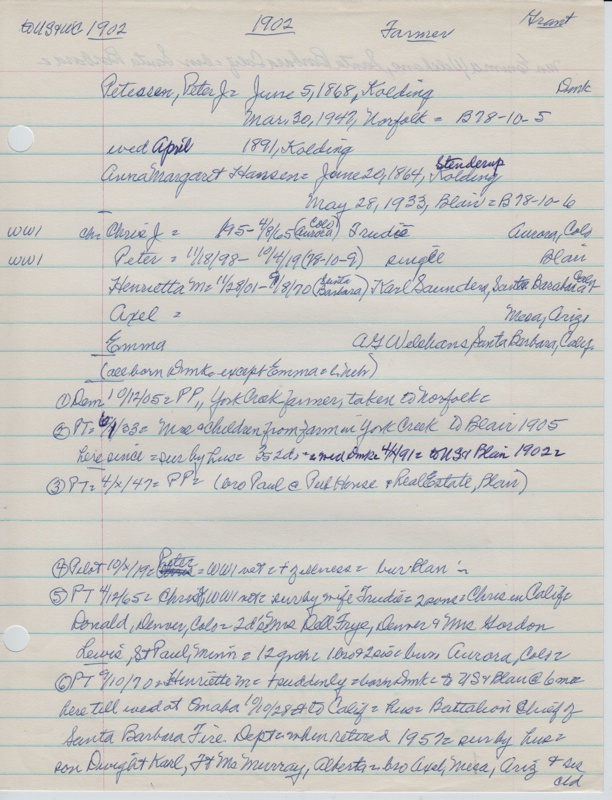 to US+WC 1902 1902 Farmer Grant
Petersen, Peter J= June 5, 1868, Kolding Dmk
Mar. 30, 1947, Norfolk = B78-10-5
wed April 1891, Kolding
Anna Margaret Hansen = June 20, 1864, Stenderup Kolding
May 28, 1933, Blair = B78-10-6
WW1 ch= Chris J = 1895- 4/8/65 (Colo Aurora) Trudie Aurora, Colo
WW1 Peter = 11/18/98- 10/4/19 (78-10-9) single Blair
Henrietta M= 11/28/01- 9/8/70 (Santa Barbara) Karl Saunders, Santa Barabara Calif
Axel = Mesa, Ariz
Emma A G Welchans, Santa Barbara, Calif.
(all born Dmk. except Emma =
① Dem 10/12/05= PP, York Creek farmer, taken to Norfolk=
② PT= 6/1/33= Mse + children from farm in York Creek to Blair 1905
here since = sur by hus= 3s 2ds += wed Dmk= 4/4/91= to US+ Blair 1902=
③ PT= 4/x/47= PP= (bro Paul @ Pub House + Real Estate, Blair)
④ Pilot 10/x/19= Peter = WW1 vet= + illness= bur Blair =
⑤ PT 4/12/65= Chris WW1 vet= sur by wife Trudie= 2 sons= Chris in Calif=
Donald, Denver, Colo= 2 d's Mrs Dell Frye, Denver + Mrs Gordon
Lewis, St Paul, Minn = 12 grch= 1 bro + 2 sis= bur Aurora, Colo=
⑥ PT 9/10/70= Henriette M= + suddenly= born Dmk= to US+ Blair @ 6 mo=
here till wed at Omaha 10/10/28 + to Calif= hus= Battalion Chief of
Santa Barbara Fire Dept= when retired 1957= sur by hus=
son Dwight + Karl, Ft Mc Murray, Alberta= bro Axel, Mesa, Ariz + sis